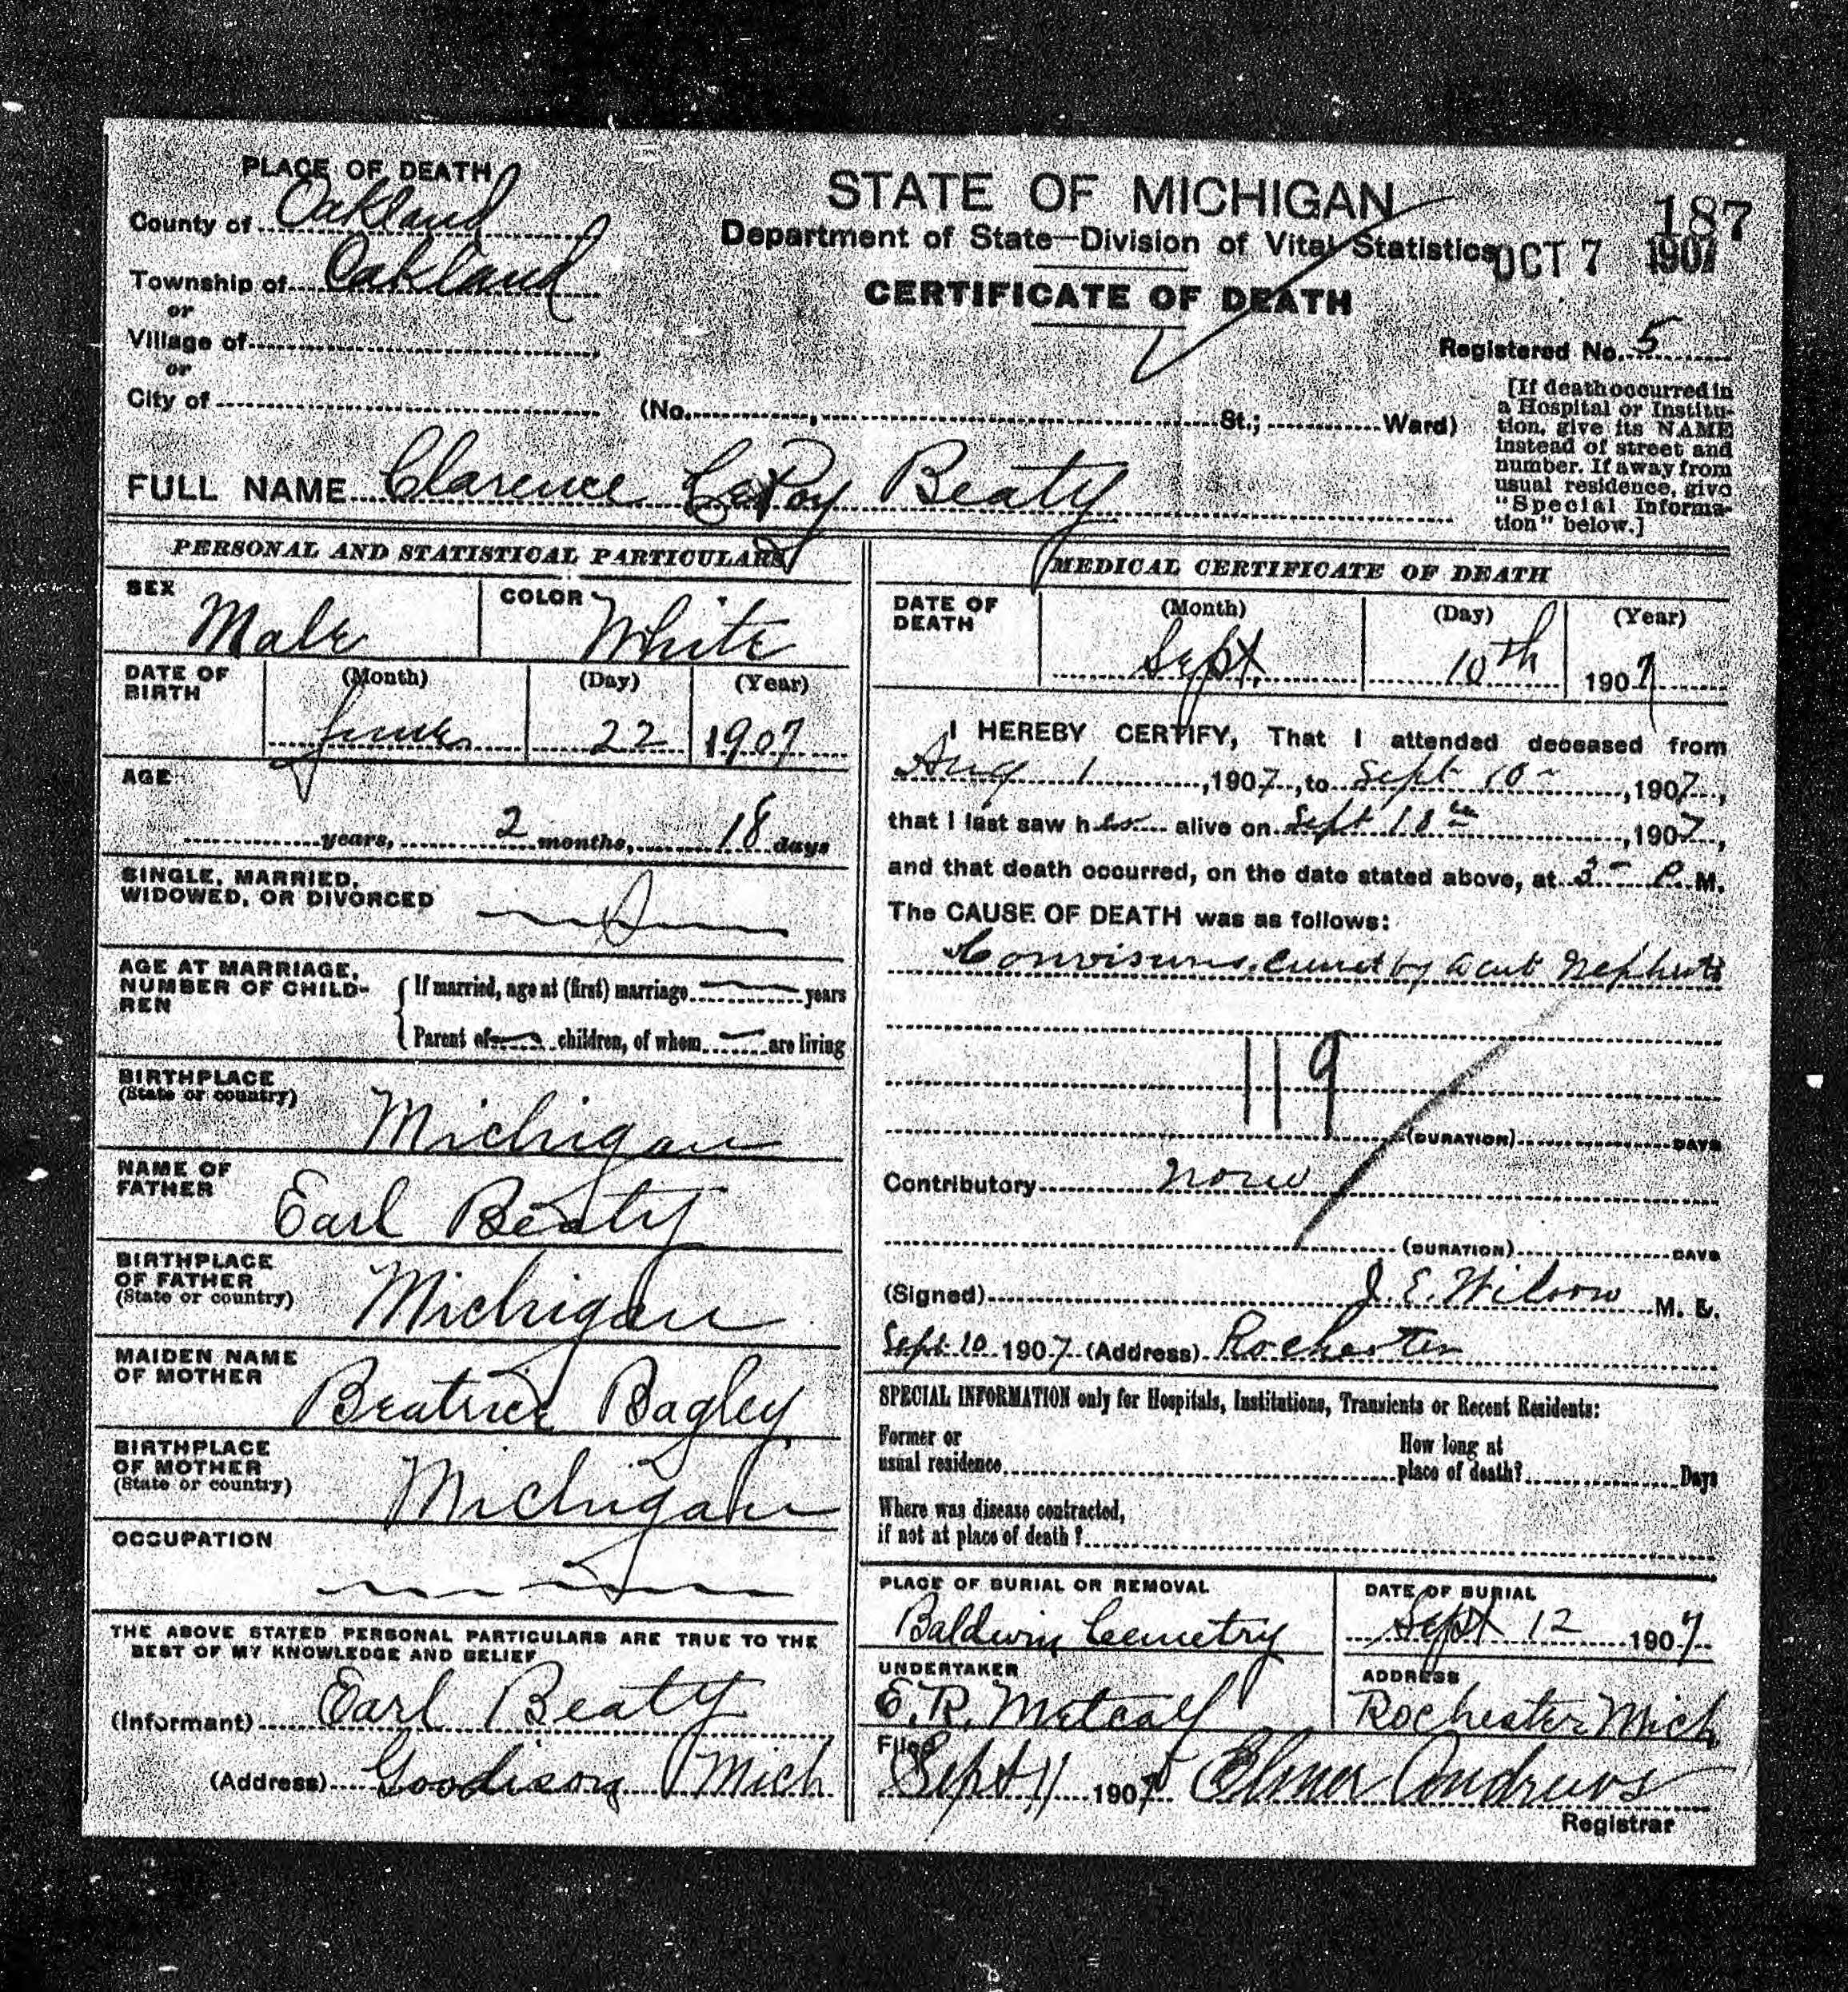 PLACE OF DEATH
County of Oakland
Township of Oakland
or
Village of
or
City of
STATE OF MICHIGAN
Department of State—Division of Vital Statistics
CERTIFICATE OF DEATH
187
OCT 7 1907
Registered No. 5
(No. , St.; Ward)
[If death occurred in
a Hospital or Institu-
tion, give its NAME
instead of street and
number. If away from
usual residence, give
"Special Informa-
tion" below.]
FULL NAME Clarence LeRoy Beaty
PERSONAL AND STATISTICAL PARTICULARS
SEX Male
COLOR White
DATE OF BIRTH
(Month) (Day) (Year)
June 22 1907
AGE
years, 2 months, 18 days
SINGLE, MARRIED,
WIDOWED, OR DIVORCED
AGE AT MARRIAGE,
NUMBER OF CHILD-
REN
If married, age at (first) marriage years
Parent of children, of whom are living
BIRTHPLACE
(State or country)
Michigan
NAME OF
FATHER
Earl Beaty
BIRTHPLACE
OF FATHER
(State or country)
Michigan
MAIDEN NAME
OF MOTHER
Beatrice Bagley
BIRTHPLACE
OF MOTHER
(State or country)
Michigan
OCCUPATION
THE ABOVE STATED PERSONAL PARTICULARS ARE TRUE TO THE
BEST OF MY KNOWLEDGE AND BELIEF
(Informant) Earl Beaty
(Address) Goodison Mich
MEDICAL CERTIFICATE OF DEATH
DATE OF
DEATH
(Month) (Day) (Year)
Sept. 10th 1907
I HEREBY CERTIFY, That I attended deceased from
Aug 1, 1907, to Sept 10, 1907,
that I last saw h alive on Sept 10th, 1907,
and that death occurred, on the date stated above, at P. M.
The CAUSE OF DEATH was as follows:
by acut Nephritis
119
(DURATION) DAYS
Contributory none
(DURATION) DAYS
(Signed) J. E. Wilson M. D.
Sept 10 1907 (Address) Rochester
SPECIAL INFORMATION only for Hospitals, Institutions, Transients or Recent Residents:
Former or
usual residence
How long at
place of death? Days
Where was disease contracted,
if not at place of death?
PLACE OF BURIAL OR REMOVAL
Baldwin Cemetry
DATE OF BURIAL
Sept 12 1907
UNDERTAKER
E. R. Metcalf
ADDRESS
Rochester Mich
Filed
Sept 11 1907 Elmer Andrews
Registrar